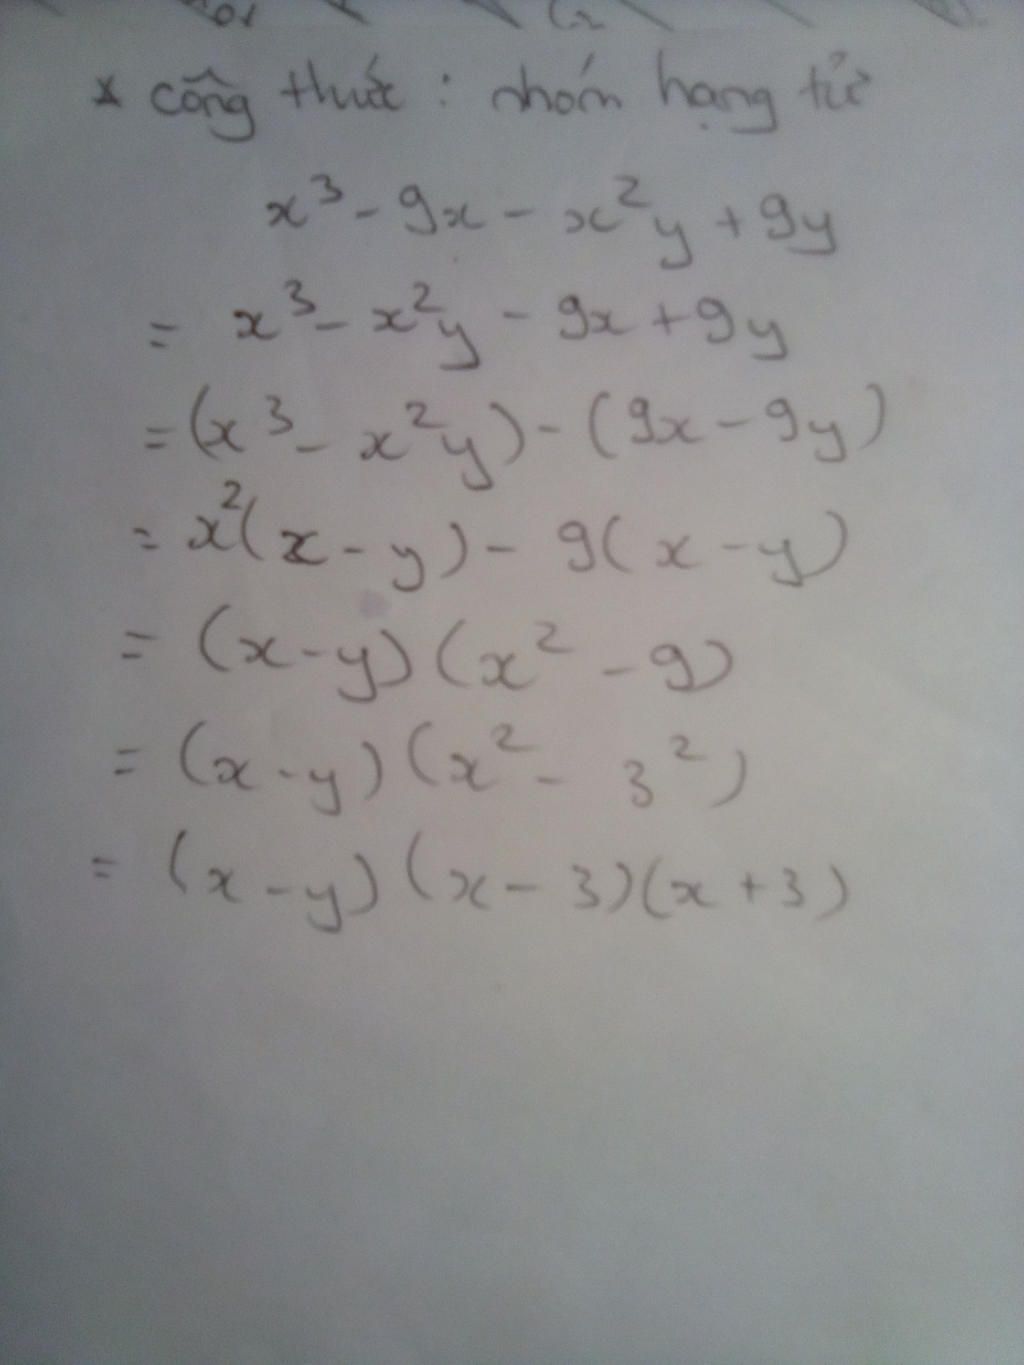 * công thức : nhóm hạng tử
x³ - 9x - x²y + 9y
= x³ - x²y - 9x + 9y
= (x³ - x²y) - (9x - 9y)
= x²(x - y) - 9(x - y)
= (x - y)(x² - 9)
= (x - y)(x² - 3²)
= (x - y)(x - 3)(x + 3)